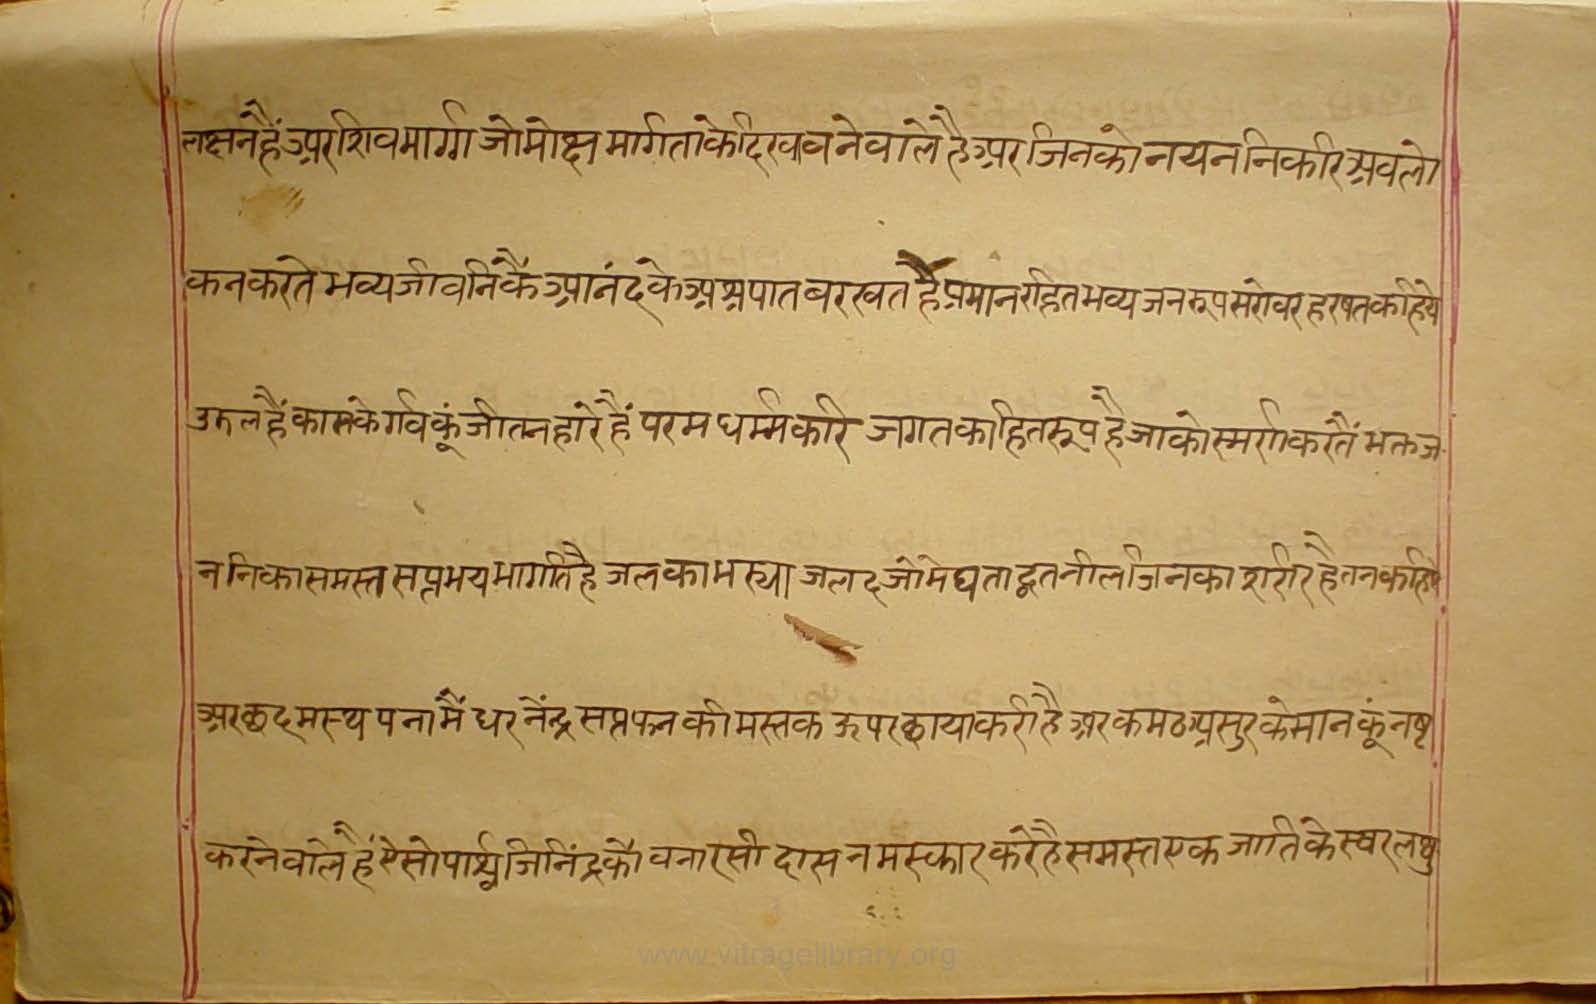 लक्षन हैं अर शिवमार्ग्ग जो मोक्षमार्ग ताके दिखावने वाले है अर जिनको नयननिकरि अवलो
कन करते भव्य जीवनिकै आनंद के अश्रुपात बरखत है प्रमानरहित भव्य जनरूप सरोवर हरषत कहिये
उझल हैं काम के गर्व कूं जीतनहारे हैं परम धर्म्मकरि जगत का हितरूप है जाको स्मर्ण करतैं भक्त ज
ननिका समस्त सप्तभय भागति है जल का भस्या जलद जो मेघ ताद्वत नील जिनका शरीर है तन कहिये
अर छदमस्थपना मैं धरनेंन्द्र सप्त फन की मस्तक ऊपर छाया करी है अर कमठ असुर के मान कूं नष्ट
करने वाले हैं ऐसो पार्श्व जिनिंद्र कौ वनारसी दास नमस्कार करे है समस्त एक जाति के स्वर लघु
www.vitragelibrary.org